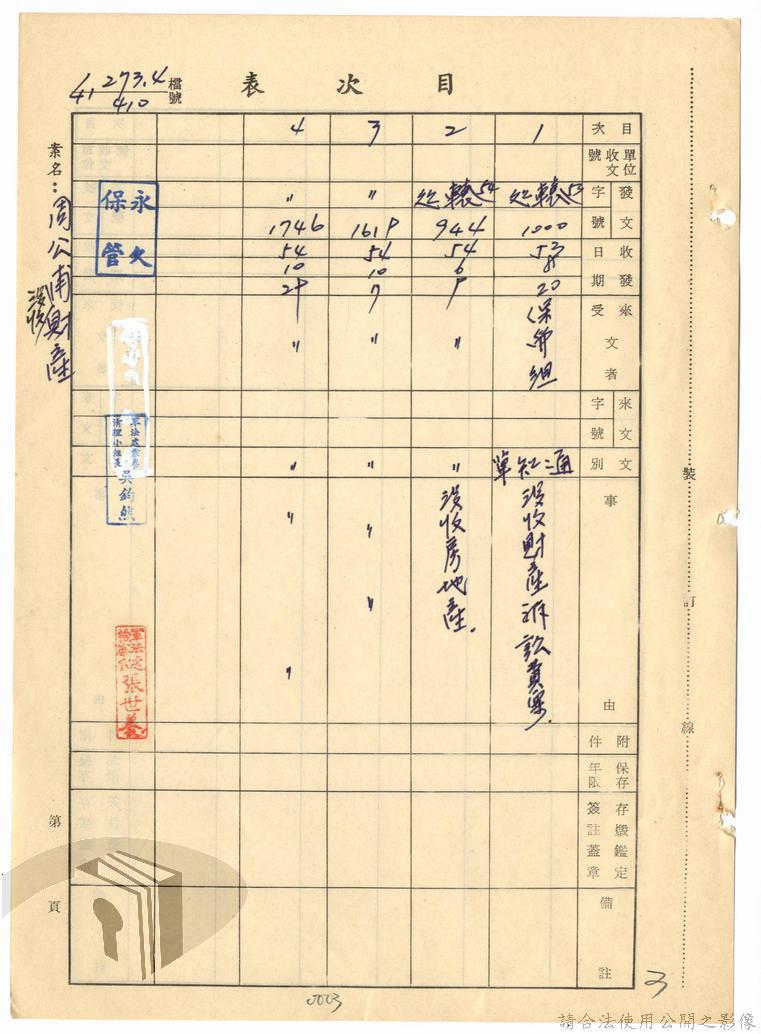 目次表
檔號
273.4
41 410
案名：周公甫財產
沒收
目次 1 2 3 4
單位收文號
發文字號 53 1000 54 944 〃 1619 〃 1746
收發日期 53 8 20 54 6 9 54 10 7 54 10 29
來受文者 保 組 〃 〃 〃
來文字號
文別 通知單 〃 〃 〃
事由
沒收財產訴訟費案.
沒收房地產.
〃 〃
〃 〃
附件
保存年限
存燬鑑定簽註蓋章
備註
永久保管
清理小組長
吳鈞然
軍法處
檢察官
張世
裝訂線
第 頁
3
0003
請合法使用公開之影像